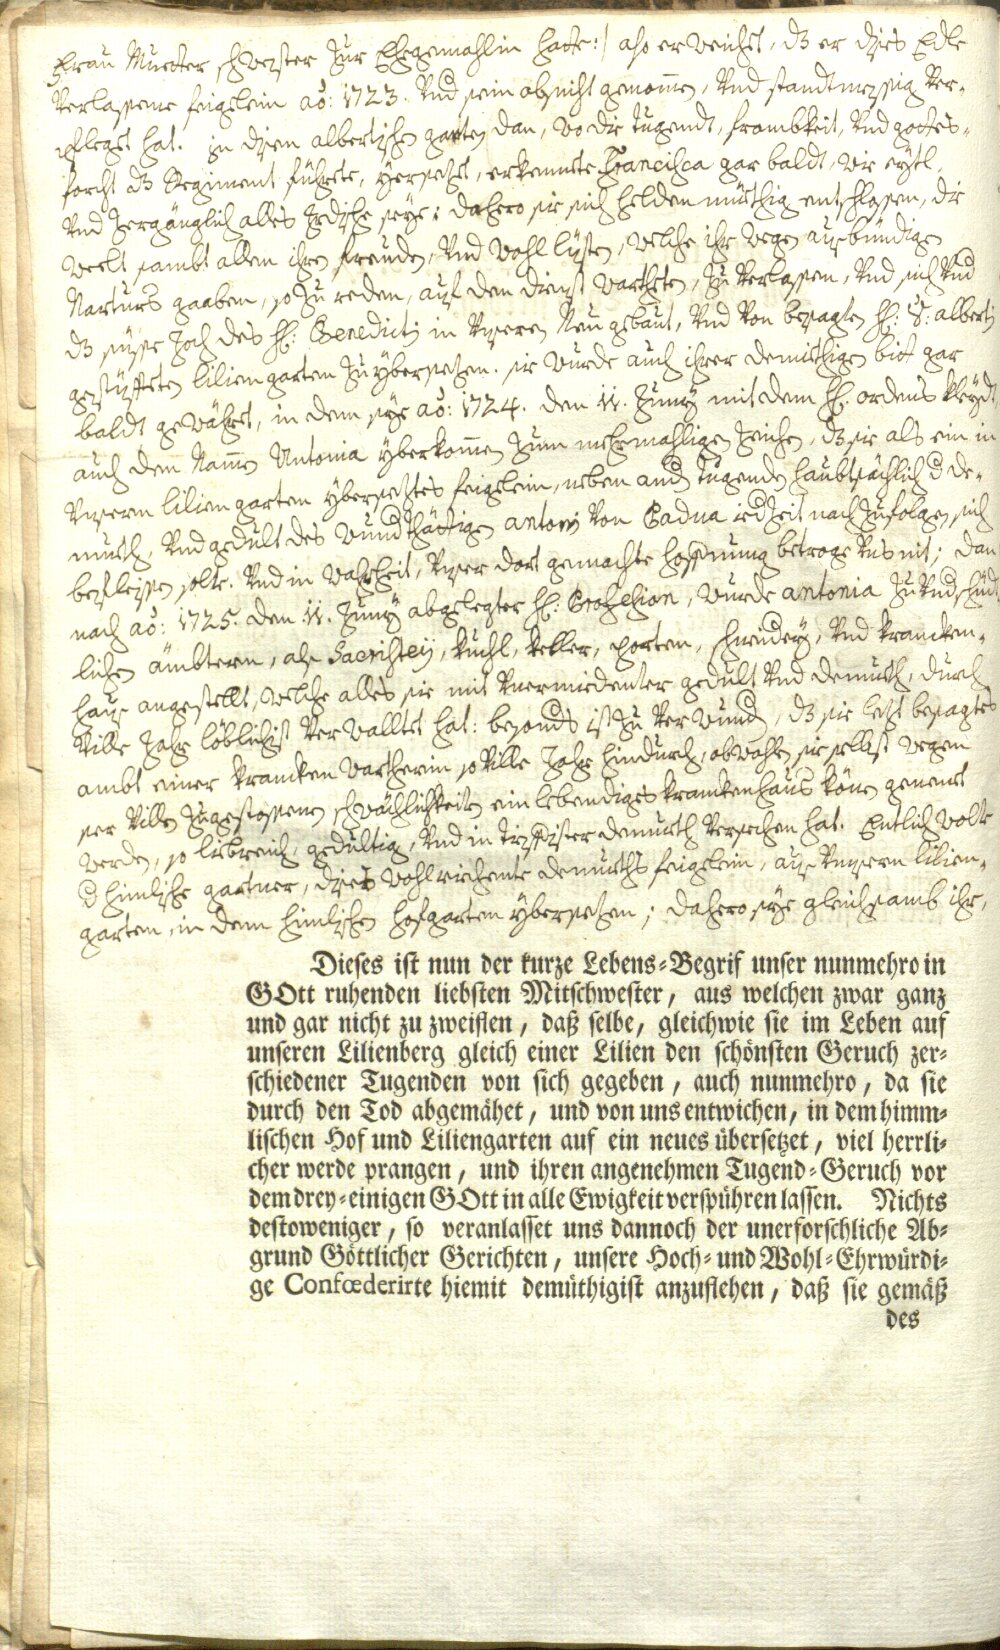 Frau Muetter schwester zur Ehegemahlin hatte:/ also erweichet, dz er dises Edle
Verlassene feigelein aō: 1723. Vnd sein obsicht genomen, Vnd standtmessig Ver-
pfleget hat. in disen albertischen garten dan, wo die tugendt, frombkeit, Vnd gottes-
forcht dz Regiment führete, ybersetzt, erkennete Francisca gar baldt, wie eytl,
Vnd zergänglich alles Irdische seye: dahero sie sich helden müethig entschlossen, die
welt sambt allen ihren freuden, Vnd wohl lüsten, welche ihr wegen ausbündigen
Naturs gaaben, so zu reden, auf den dienst warteten, zu Verlassen, Vnd sich Vnd
dz süsse Joch des H: Benedicti in Vnseren Neu gebaut, Vnd Von besagten H: P: alberti
gestüfften liliengarten zu ybersetzen. sie wurde auch ihrer demiethigen bitt gar
baldt gewähret, in dem sye aō: 1724. den 11. Juny mit dem H. ordens kleydt,
auch den Namen Antonia yberkomen zum mehrmahligen zeichen, dz sie als ein in
Vnserm liliengarten ybersetztes feigelein, neben andn tugenden haubtsächlich d de-
mueth, Vnd gedult des wundthättigen antonj Von Padua iedzeit nachzufolgen sich
befleissen solte. Vnd in wahrheit, Vnser dort gemachte hoffnung betroge Vns nit; dan
nach aō: 1725. den 11. Juny abgelegter H: Profession, wurde antonia zu Vndschüdt-
lichen ämbtern, als Sacristey, kuchl, keller, porten, schneidey, Vnd krancken-
haus angestellt, welche alles sie mit Vnermiedenter gedult Vnd demueth, durch
Ville Jahr löblichist Verwalltet hat: besonds ist zu Verwundn, dz sie letzt besagtes
ambt einer krancken wartherin so Ville Jahr hindurch, obwohlen sie selbst wegen
ser Villen zugestossenen schwächlichkeiten ein lebendiges kranckenhaus könen genennt
werden, so liebreich, gedultig, Vnd in tieffister demueth Versechen hat. Entlich wolte
d himlische gartner, dises wohlriechente demueths feigelein, aus Vnserm lilien-
garten, in dem himlischen hofgarten ybersetzen; dahero sye gleichsamb ihr,
Dieses ist nun der kurze Lebens-Begrif unser nunmehro in
GOtt ruhenden liebsten Mitschwester, aus welchen zwar ganz
und gar nicht zu zweiflen, daß selbe, gleichwie sie im Leben auf
unseren Lilienberg gleich einer Lilien den schönsten Geruch zer-
schiedener Tugenden von sich gegeben, auch nunmehro, da sie
durch den Tod abgemähet, und von uns entwichen, in dem himm-
lischen Hof und Liliengarten auf ein neues übersetzet, viel herrli-
cher werde prangen, und ihren angenehmen Tugend-Geruch vor
dem drey-einigen GOtt in alle Ewigkeit verspühren lassen. Nichts
destoweniger, so veranlasset uns dannoch der unerforschliche Ab-
grund Göttlicher Gerichten, unsere Hoch- und Wohl-Ehrwürdi-
ge Confœderirte hiemit demüthigist anzuflehen, daß sie gemäß
des